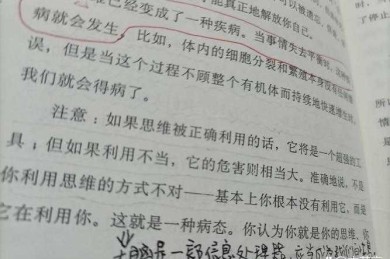 能真正地解放你自己。
维已经变成了一种疾病。当事情失去平衡时,
病就会发生,比如,体内的细胞分裂和繁殖本身没有
误,但是当这个过程不顾整个有机体而持续地快速增
我们就会得病了。
注意:如果思维被正确利用的话,它将是一个超强的工
具;但如果利用不当,它的危害则相当大。准确地说,不是
你利用思维的方式不对——基本上你根本没有利用它,而是
它在利用你。这就是一种病态。你认为你就是你的思维,
大脑是一颗信息处理器,应当